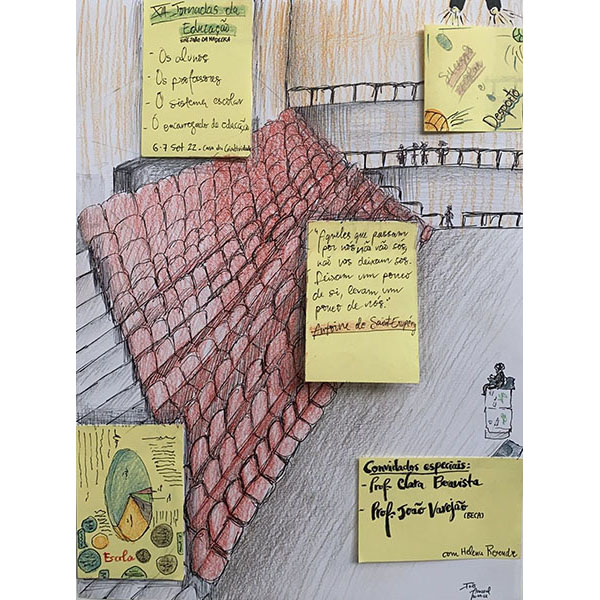 XII Jornadas da
Educação
SÃO JOÃO DA MADEIRA
- Os alunos
- Os professores
- O sistema escolar
- O encarregado de educação
6-7 Set 22 - Casa da Criatividade
e
Desporto
"Aqueles que passam
por nós não vão sós,
não vos deixam sós.
Deixam um pouco
de si, levam um
pouco de nós."
Antoine de Saint Exupéry
Escola
Convidados especiais:
- Prof. Clara Boavista
- Prof. João Varejão
(BECA)
com Helena Resende